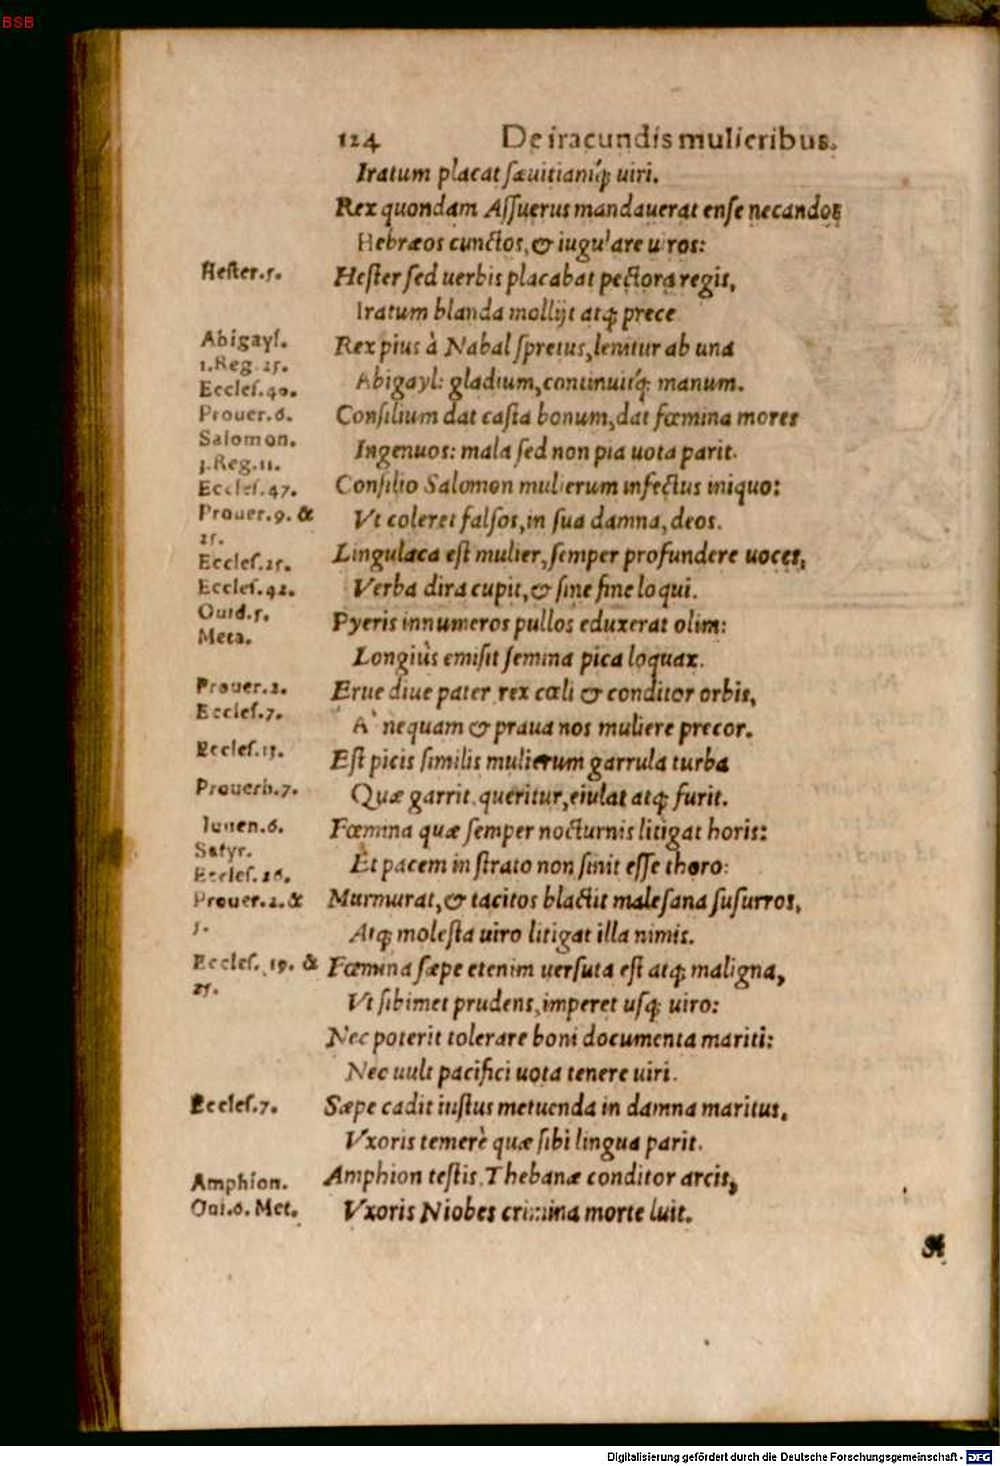 BSB
124 De iracundis mulieribus.
Iratum placat sæuitiamq́; uiri.
Rex quondam Assuerus mandauerat ense necandos
Hebræos cunctos, & iugulare uiros:
Hester.5. Hester sed uerbis placabat pectora regis,
Iratum blanda mollijt atq; prece
Abigayl. Rex pius à Nabal spretus, lenitur ab una
1.Reg.25.
Eccles.40. Abigayl: gladium, continuitq́; manum.
Prouer.6. Consilium dat casta bonum, dat fœmina mores
Salomon. Ingenuos: mala sed non pia uota parit.
3.Reg.11.
Eccles.47. Consilio Salomon mulierum infectus iniquo:
Prouer.9. & Vt coleret falsos, in sua damna, deos.
25.
Eccles.25. Lingulaca est mulier, semper profundere uoces,
Eccles.42. Verba dira cupit, & sine fine loqui.
Ouid.5. Pyeris innumeros pullos eduxerat olim:
Meta. Longiùs emisit semina pica loquax.
Prouer.2. Erue diue pater rex cœli & conditor orbis,
Eccles.7. A` nequam & praua nos muliere precor.
Eccles.13. Est picis similis mulierum garrula turba
Prouerb.7. Quæ garrit, queritur, eiulat atq; furit.
Iuuen.6. Fœmina quæ semper nocturnis litigat horis:
Satyr. Et pacem in strato non sinit esse thoro:
Eccles.26.
Prouer.2.& Murmurat, & tacitos blactit malesana susurros,
5. Atq; molesta uiro litigat illa nimis.
Eccles. 19. & Fœmina sæpe etenim uersuta est atq; maligna,
25. Vt sibimet prudens, imperet usq; uiro:
Nec poterit tolerare boni documenta mariti:
Nec uult pacifici uota tenere uiri.
Eccles.7. Sæpe cadit iustus metuenda in damna maritus,
Vxoris temerè quæ sibi lingua parit.
Amphion. Amphion testis, Thebanæ conditor arcis,
Oui.6. Met. Vxoris Niobes crimina morte luit.
Digitalisierung gefördert durch die Deutsche Forschungsgemeinschaft - DFG